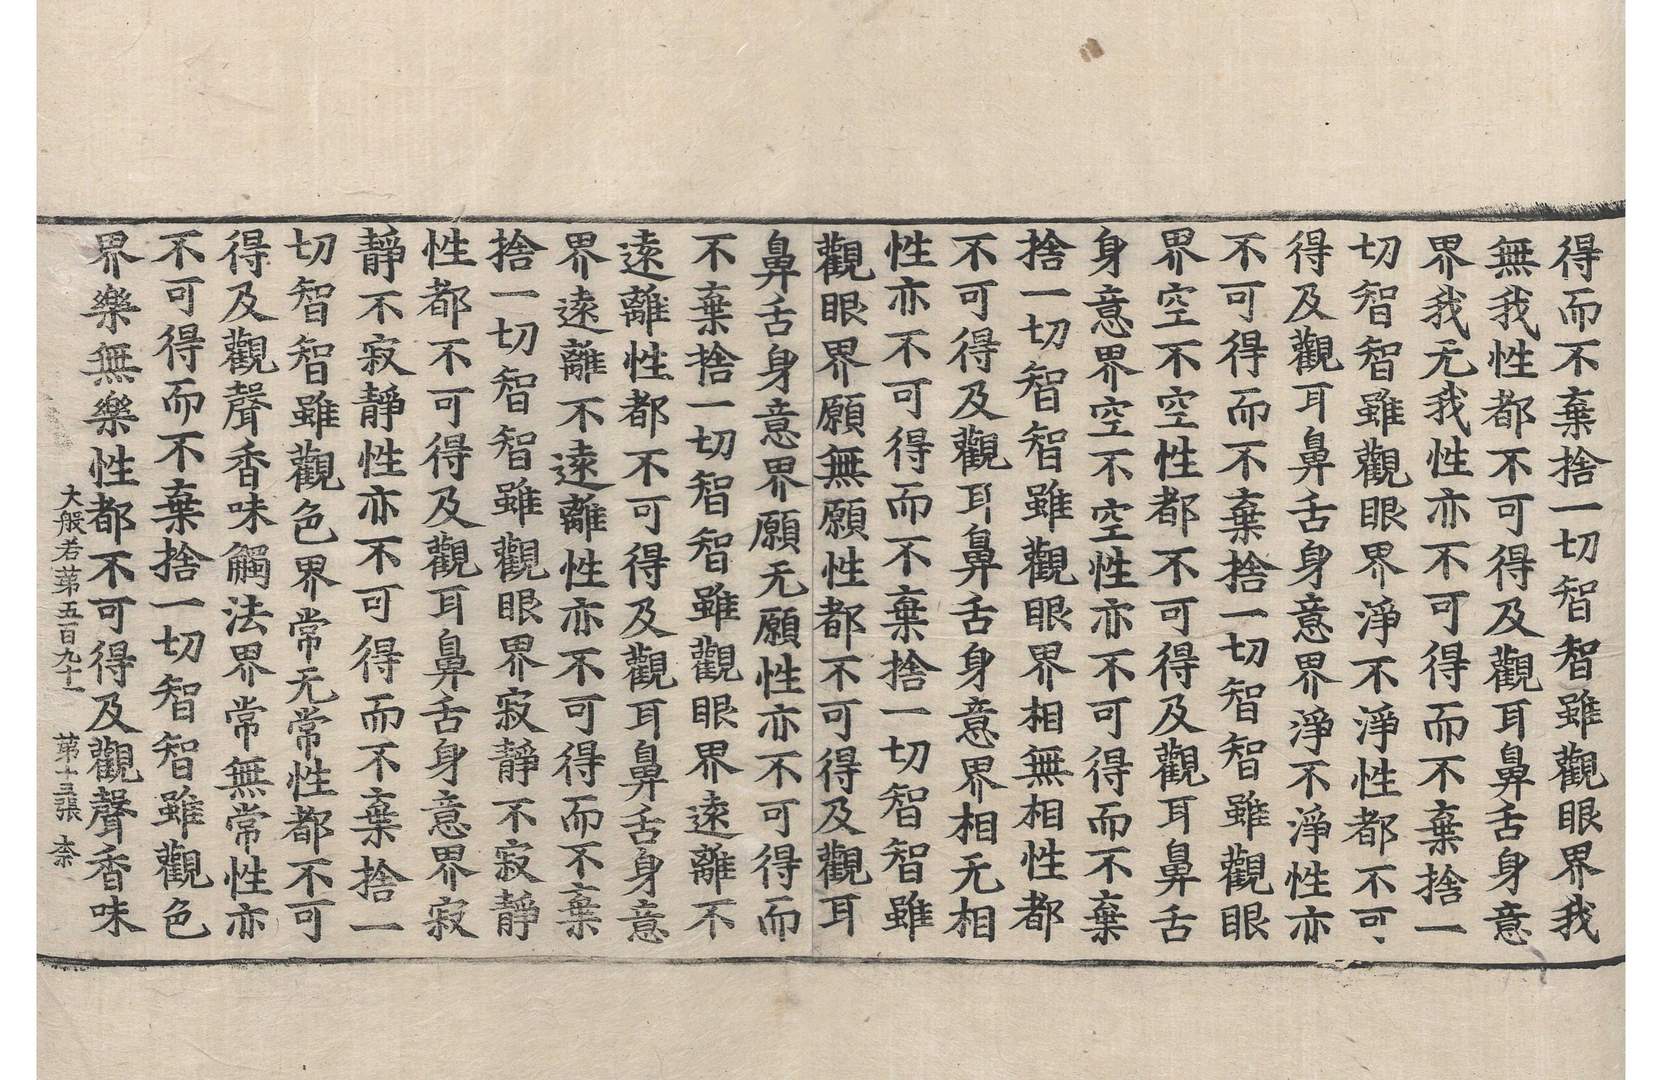 得而不棄捨一切智智雖觀眼界我
無我性都不可得及觀耳鼻舌身意
界我无我性亦不可得而不棄捨一
切智智雖觀眼界淨不淨性都不可
得及觀耳鼻舌身意界淨不淨性亦
不可得而不棄捨一切智智雖觀眼
界空不空性都不可得及觀耳鼻舌
身意界空不空性亦不可得而不棄
捨一切智智雖觀眼界相無相性都
不可得及觀耳鼻舌身意界相无相
性亦不可得而不棄捨一切智智雖
觀眼界願無願性都不可得及觀耳
鼻舌身意界願无願性亦不可得而
不棄捨一切智智雖觀眼界遠離不
遠離性都不可得及觀耳鼻舌身意
界遠離不遠離性亦不可得而不棄
捨一切智智雖觀眼界寂靜不寂靜
性都不可得及觀耳鼻舌身意界寂
靜不寂靜性亦不可得而不棄捨一
切智智雖觀色界常无常性都不可
得及觀聲香味觸法界常無常性亦
不可得而不棄捨一切智智雖觀色
界樂無樂性都不可得及觀聲香味
大般若苐五百九十一 苐十三張 柰